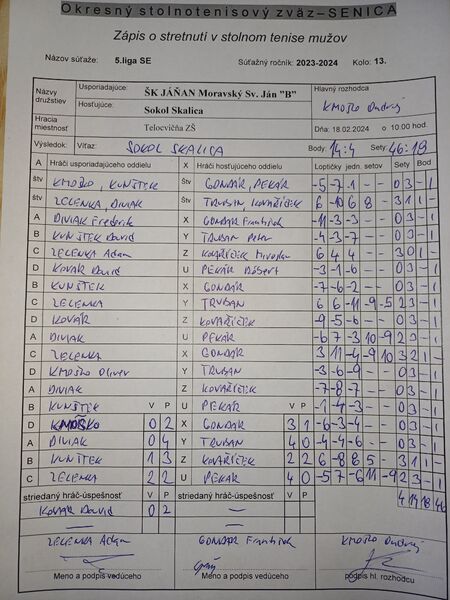 Okresný stolnotenisový zväz–SENICA
Zápis o stretnutí v stolnom tenise mužov
Názov súťaže: 5.liga SE Súťažný ročník: 2023-2024 Kolo: 13.
Názvy družstiev Usporiadajúce: ŠK JÁŇAN Moravský Sv. Ján "B" Hlavný rozhodca
Hosťujúce: Sokol Skalica KMOŠKO Ondrej
Hracia miestnosť Telocvičňa ZŠ Dňa: 18.02.2024 o 10:00 hod.
Výsledok: Víťaz: SOKOL SKALICA Body: 14:4 Sety: 46:18
A Hráči usporiadajúceho oddielu X Hráči hosťujúceho oddielu Loptičky jedn. setov Sety Bod
štv KMOŠKO, KUNŠTEK Štv GONDÁR, PEKÁR -5 -7 1 - - 0 3 - 1
štv ZELENKA, DIVIAK Štv TRUBAN, KOVAŘÍČEK 6 -10 6 8 - 3 1 1 -
A DIVIAK Frederik X GONDÁR František -11 -3 -3 - - 0 3 - 1
B KUNŠTEK David Y TRUBAN Peter -4 -3 -7 - - 0 3 - 1
C ZELENKA Adam Z KOVAŘÍČEK Miroslav 6 4 4 - - 3 0 1 -
D KOVÁR David U PEKÁR Róbert -3 -1 -6 - - 0 3 - 1
B KUNŠTEK X GONDÁR -7 -6 -2 - - 0 3 - 1
C ZELENKA Y TRUBAN 6 6 -11 -9 -5 2 3 - 1
D KOVÁR Z KOVAŘÍČEK -9 -5 -6 - - 0 3 - 1
A DIVIAK U PEKÁR -6 7 -3 10 -9 2 3 - 1
C ZELENKA X GONDÁR 3 11 -4 -9 10 3 2 1 -
D KMOŠKO Oliver Y TRUBAN -3 -6 -9 - - 0 3 - 1
A DIVIAK Z KOVAŘÍČEK -7 -8 -7 - - 0 3 - 1
B KUNŠTEK V P U PEKÁR V P -1 -4 -3 - - 0 3 - 1
D KMOŠKO 0 2 X GONDÁR 3 1 -6 -3 -4 - - 0 3 - 1
A DIVIAK 0 4 Y TRUBAN 4 0 -4 -4 -6 - - 0 3 - 1
B KUNŠTEK 1 3 Z KOVAŘÍČEK 2 2 6 -8 8 5 - 3 1 1 -
C ZELENKA 2 2 U PEKÁR 4 0 -5 7 -6 11 -9 2 3 - 1
striedaný hráč-úspešnosť V P striedaný hráč-úspešnosť V P 4 14 18 46
KOVÁR David 0 2 —
— —
ZELENKA Adam GONDÁR František KMOŠKO Ondrej
Meno a podpis vedúceho Meno a podpis vedúceho podpis hl. rozhodcu